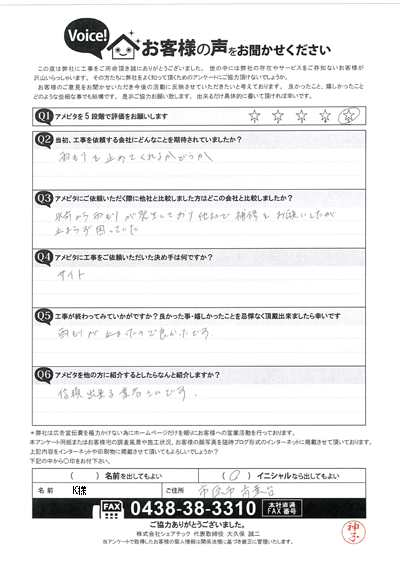 Voice!
お客様の声をお聞かせください
この度は弊社に工事をご用命頂き誠にありがとうございました。世の中には弊社の存在やサービスをご存知ないお客様が
沢山いらっしゃいます。その方たちに弊社をよく知って頂くためのアンケートにご協力頂けないでしょうか。
お客様のご意見をお聞かせいただき今後の活動に反映させていただきたいと考えております。良かったこと、嬉しかったこと
どのような些細な事でも結構です。是非ご協力お願い致します。出来るだけ具体的に書いて頂ければ幸いです。
Q1 アメピタを5段階で評価をお願いします ☆ ☆ ☆ ☆ ☆
Q2 当初、工事を依頼する会社にどんなことを期待されていましたか?
雨もりを止めてくれるかどうか
Q3 アメピタにご依頼いただく際に他社と比較しました方はどこの会社と比較しましたか?
以前から雨もりが発生しており他社で補修をお願いしたが
止まらず困っていた
Q4 アメピタに工事をご依頼いただいた決め手は何ですか?
サイト
Q5 工事が終わってみていかがですか?良かった事・嬉しかったことを忌憚なく頂戴出来ましたら幸いです
雨もりが止まったので良かったです
Q6 アメピタを他の方に紹介するとしたらなんと紹介しますか?
信頼出来る業者さんです。
*弊社は広告宣伝費を極力かけない為にホームページだけを頼りにお客様への営業活動を行っております。
本アンケート用紙またはお客様宅の調査風景や施工状況、お客様の顔写真を随時ブログ形式のインターネットに掲載させて頂いております。
上記内容をインターネットや印刷物に掲載させて頂いてもよろしいでしょうか?
下記の中から〇印をお付け下さい。
( ) 名前を出してもよい ( 〇 ) イニシャルなら出してもよい
名前 K様 ご住所 市原市青葉台
FAX 0438-38-3310 本社直通 FAX番号
ご協力ありがとうございました。
株式会社シェアテック 代表取締役 大久保 誠二
当アンケートで取得したお客様の個人情報は関係法規に基づき厳正に管理いたします。
神子